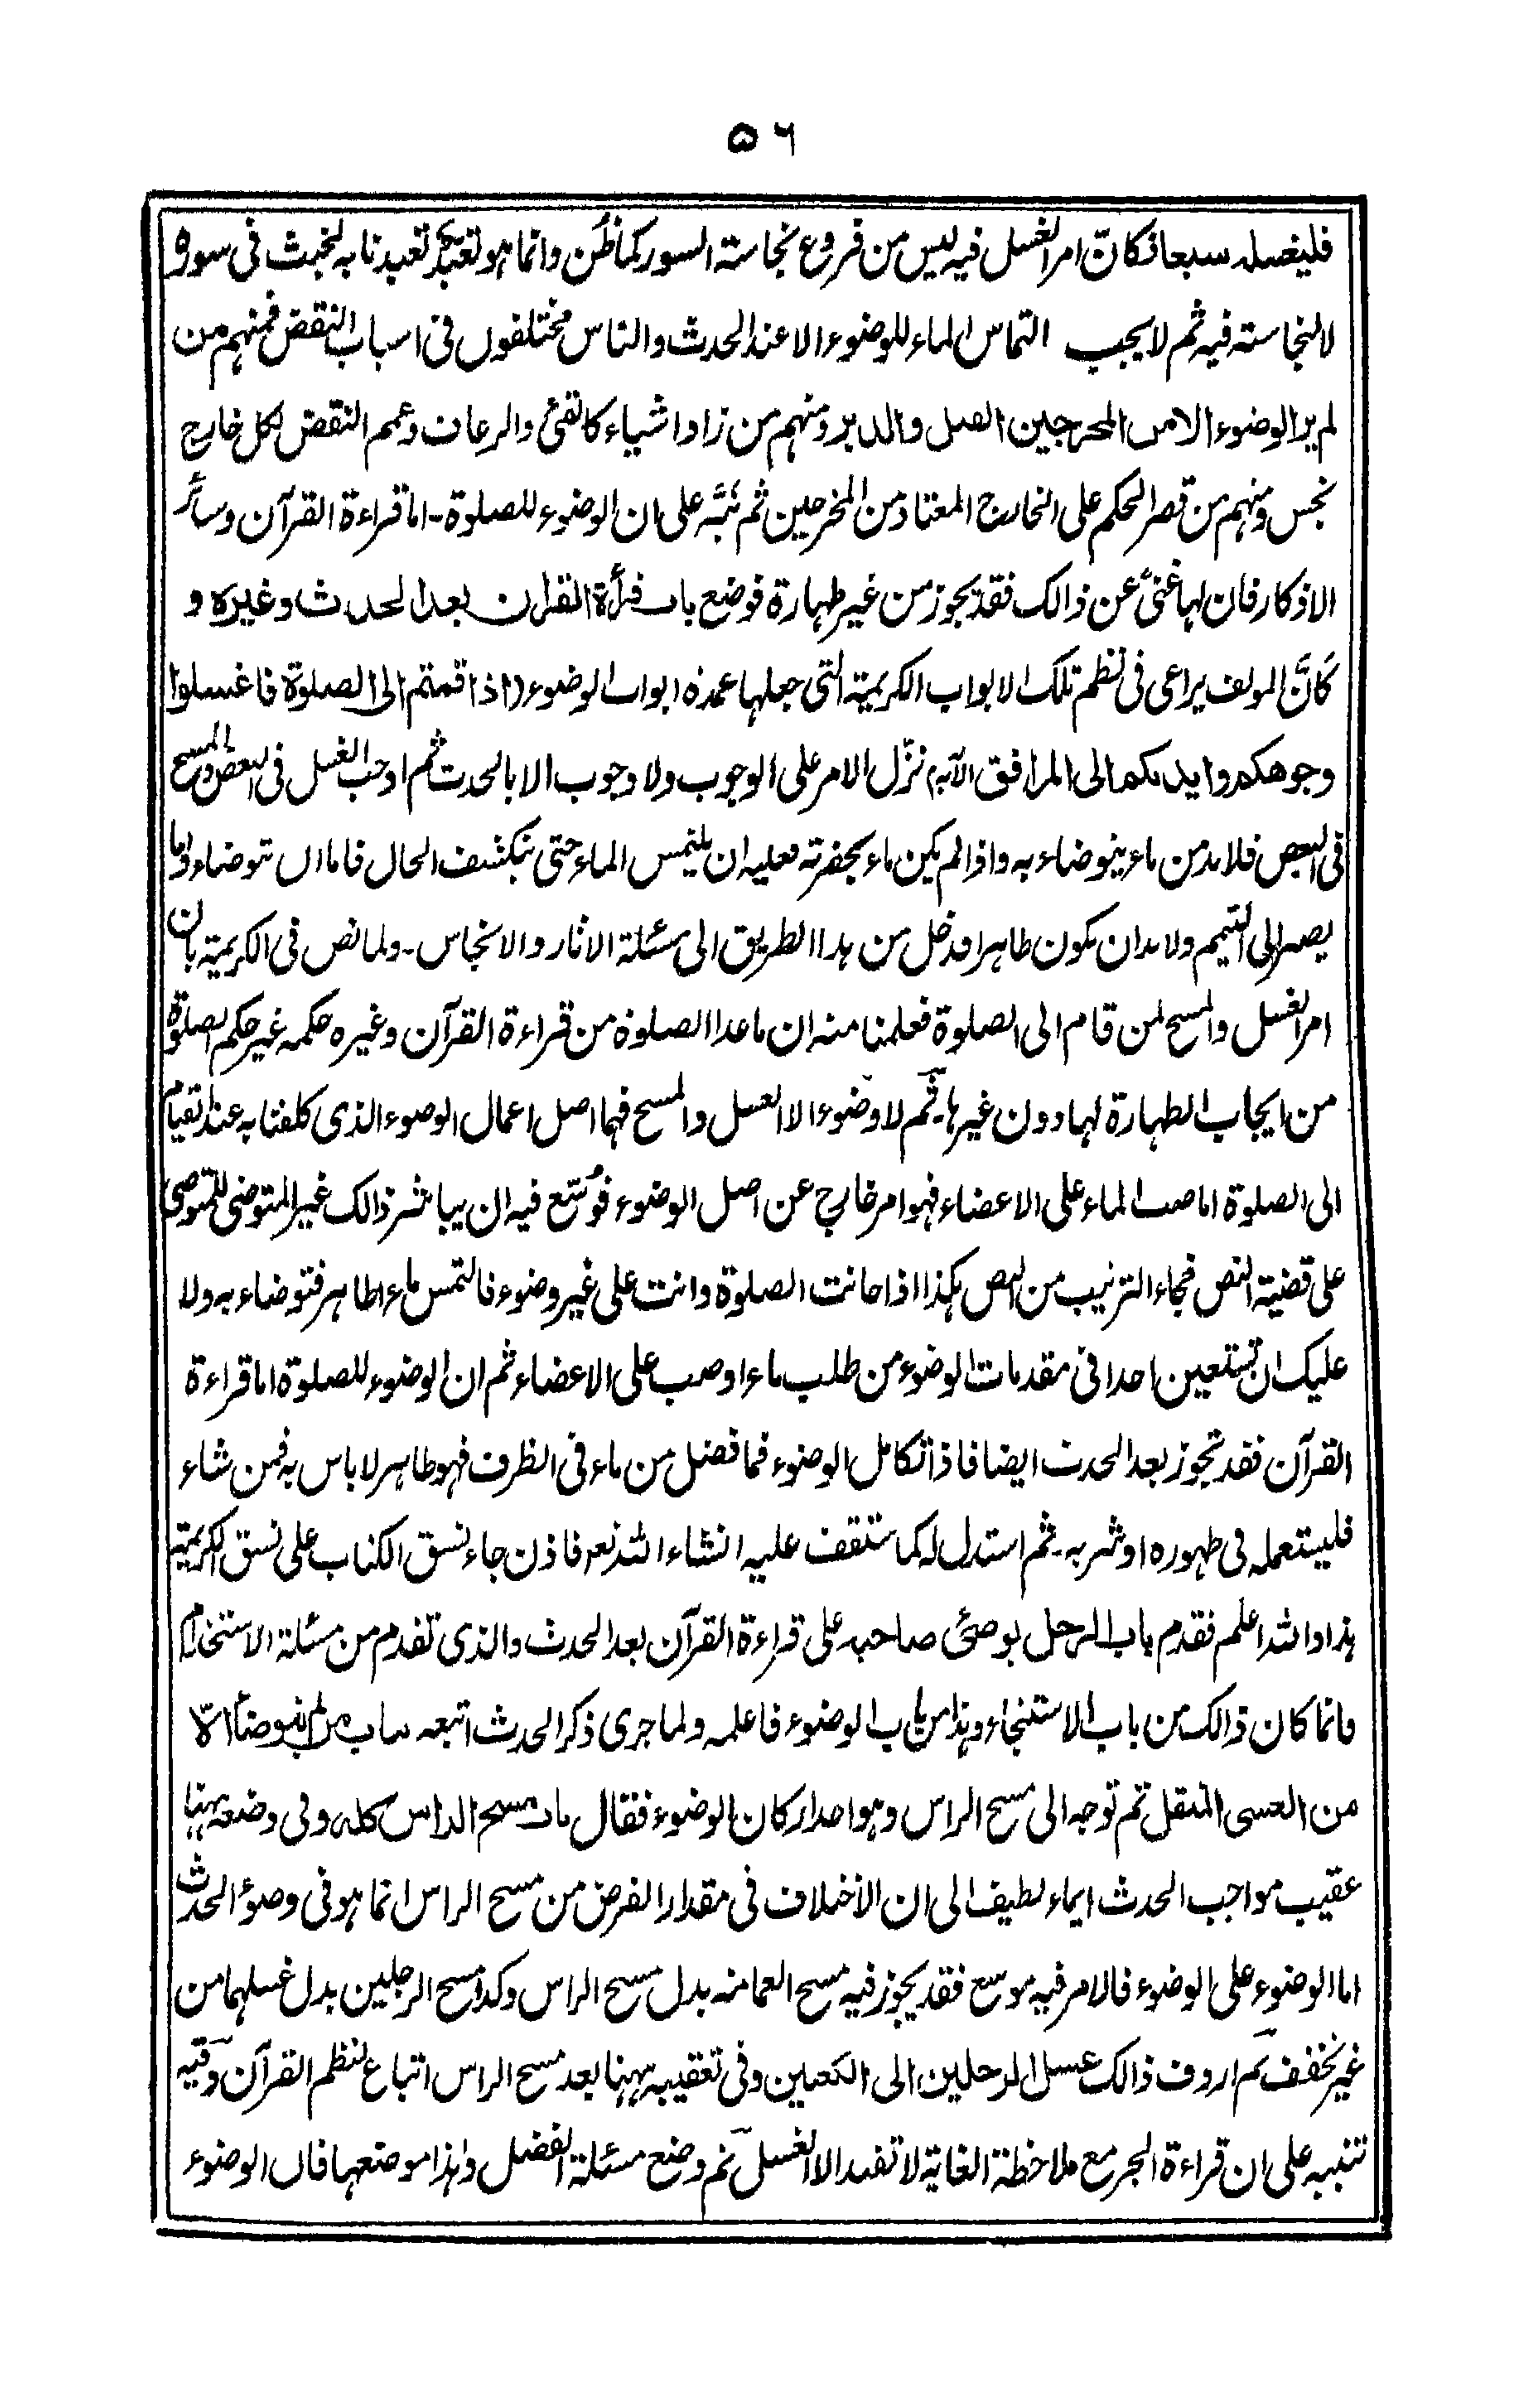 ٥٦
فليغسله سبعا فكانّ امر الغسل فيه ليس من فروع نجاسة السور كما ظُن وانما هو تعبد تعبدنا به لخبث فى سوره
لا لنجاسته فيه ثم لا يجب التماس الماء للوضوء الا عند الحدث والناس مختلفون فى اسباب النقض فمنهم من
لم ير الوضوء الا من المخرجين القبل والدبر ومنهم من زاد اشياء كالقئ والرعاف وعمم النقض لكل خارج
نجس ومنهم من قصر الحكم على الخارج المعتاد من المخرجين ثم نبّه على ان الوضوء للصلوة۔ اما قراءة القرآن وسائر
الاذكار فان لها غنىً عن ذالك فقد يجوز من غير طهارة فوضع باب قرأة القران بعد الحدث وغيره و
كانّ المولف يراعى فى نظم تلك الابواب الكريمة التى جعلها عمدة ابواب الوضوء (اذا قمتم الى الصلوة فاغسلوا
وجوهكم وايديكم الى المرافق الآية) نزّل الامر على الوجوب ولا وجوب الا بالحدث ثم اوجب الغسل فى البعض والمسح
فى البعض فلا بد من ماء يتوضاء به واذا لم يكن ماء بحضرته فعليه ان يلتمس الماء حتى ينكشف الحال فاما ان توضاء واما
يصير الى التيمم ولا بد ان يكون طاهرا فدخل من هذا الطريق الى مسئلة الاثار والانجاس۔ ولما نص فى الكريمة بان
امر الغسل والمسح لمن قام الى الصلوة فعلمنا منه ان ما عدا الصلوة من قراءة القرآن وغيره حكمه غير حكم الصلوة
من ايجاب الطهارة لها دون غيرها۔ ثم لا وضوء الا الغسل والمسح فهما اصل اعمال الوضوء الذى كلفنا به عند القيام
الى الصلوة اما صب الماء على الاعضاء فهو امر خارج عن اصل الوضوء فوُسّع فيه ان يباشر ذالك غير المتوضى للمتوضى
على قضية النص فجاء الترتيب من النص هكذا اذا حانت الصلوة وانت على غير وضوء فالتمس ماء اطاهر فتوضاء به ولا
عليك ان تستعين احدا فى مقدمات الوضوء من طلب ماء او صب على الاعضاء ثم ان الوضوء للصلوة اما قراءة
القرآن فقد تجوز بعد الحدث ايضا فاذا تكامل الوضوء فما فضل من ماء فى الظرف فهو طاهر لا باس به فمن شاء
فليستعمله فى طهوره او شربه۔ ثم استدل له كما ستقف عليه انشاء الله تعم فاذن جاء نسق الكتاب على نسق الكريمة
هذا والله اعلم فقدم باب الرجل يوضئ صاحبه على قراءة القرآن بعد الحدث والذى تقدم من مسئلة الاستخدام
فانما كان ذالك من باب الاستنجاء وهذا من باب الوضوء فاعلمه ولما جرى ذكر الحدث اتبعه باب من لم يتوضأ الّا
من الغسى المثقل ثم توجه الى مسح الراس وهو احد اركان الوضوء فقال باب مسح الراس كله وفى وضعه ههنا
عقيب مواجب الحدث ايماء لطيف الى ان الاختلاف فى مقدار الفرض من مسح الراس انما هو فى وضوء الحدث
اما الوضوء على الوضوء فالامر فيه موسع فقد يجوز فيه مسح العمامة بدل مسح الراس وكذا مسح الرجلين بدل غسلهما من
غير تخفف ثم اردف ذالك غسل الرجلين الى الكعبين وفى تعقيبه ههنا بعد مسح الراس اتباع لنظم القرآن وفيه
تنبيه على ان قراءة الجر مع ملاحظة الغاية لا تفيد الا الغسل ثم وضع مسئلة الفضل وهذا موضعها فان الوضوء